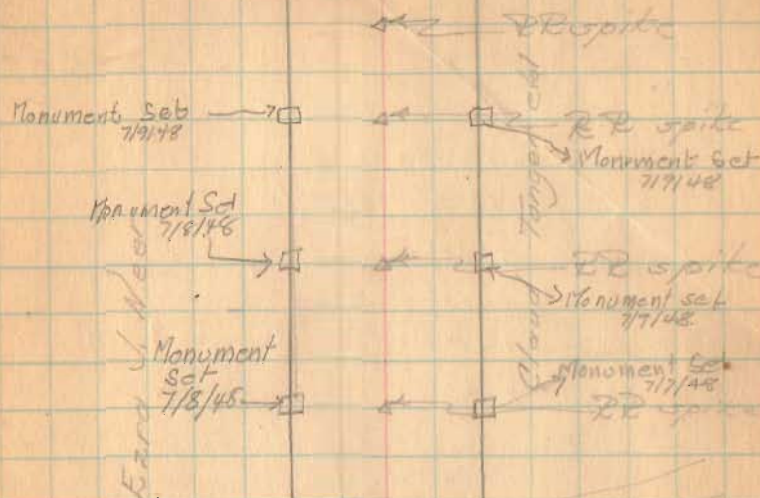 RR spike
Monument Set
7/9/48
RR spike
Monument Set
7/9/48
Monument Set
7/8/48
RR spike
Monument set
7/7/48
Monument
Set
7/8/48
Monument Set
7/7/48
RR spike
Ezra S. Neer